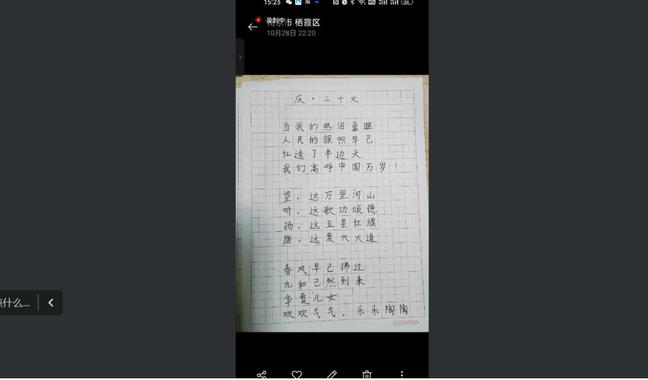 15:23
南京市 栖霞区
10月28日 22:20
庆·二十大
当我们热泪盈眶
人民的旗帜早已
红透了半边天
我们高呼中国万岁!
望,这万里河山
听,这歌功颂德
扬,这五星红旗
踏,这复兴大道
春风早已拂过
九和已然到来
华夏儿女
欢欢气气,乐乐陶陶
点什么...